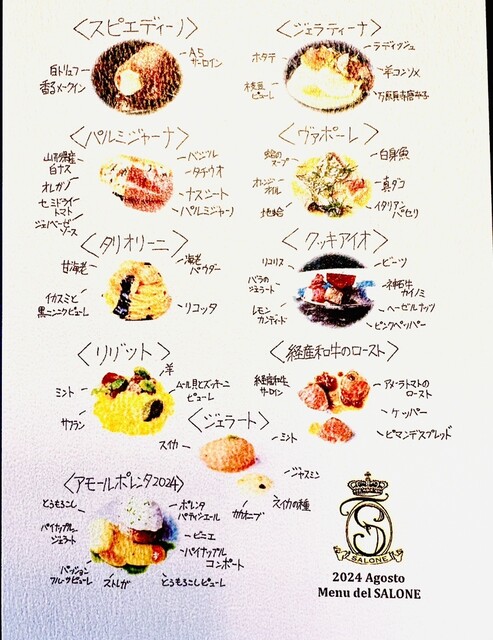 〈スピエディーノ〉
A5
サーロイン
白トリュフ
香るメークイン
〈ジェラティーナ〉
ホタテ
ラディッシュ
羊コンソメ
枝豆
ピューレ
万願寺唐辛子
〈パルミジャーナ〉
山形県産
白ナス
オレガノ
セミドライ
トマト
ジェノベーゼ
ソース
バジル
タチウオ
ナスシート
パルミジャーノ
〈ヴァポーレ〉
蛤の
スープ
オレンジ
オイル
地蛤
白身魚
真ダコ
イタリアン
パセリ
〈タリオリーニ〉
甘海老
海老
パウダー
イカスミと
黒ニンニクピューレ
リコッタ
〈クッキアイオ〉
リコリス
バラの
ジェラート
レモン
カンディート
ビーツ
神石牛
カイノミ
ヘーゼルナッツ
ピンクペッパー
〈リゾット〉
羊
ミント
ムール貝とズッキーニ
ピューレ
サフラン
〈経産和牛のロースト〉
経産和牛
サーロイン
アメーラトマトの
ロースト
ケッパー
ピマンデスプレッド
〈ジェラート〉
スイカ
ミント
ジャスミン
スイカの種
カカオニブ
〈アモールポレンタ2024〉
とうもろこし
パイナップル
ジェラート
パッション
フルーツピューレ
ストレガ
ポレンタ
パティシエール
ビニエ
パイナップル
コンポート
とうもろこしピューレ
SALONE
2024 Agosto
Menu del SALONE